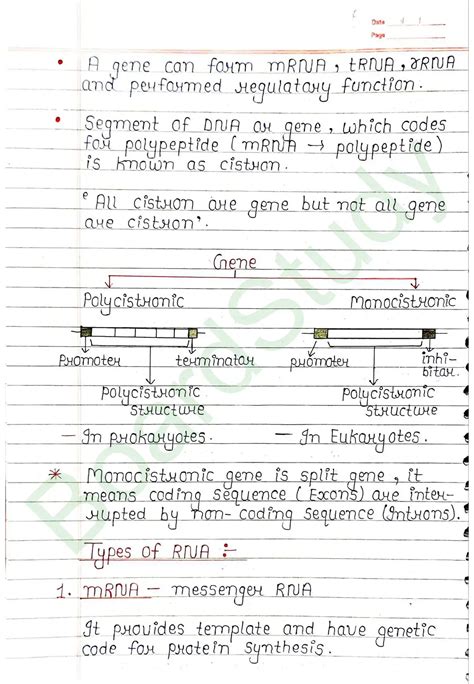 Date
Page
• A gene can form mRNA, tRNA, rRNA
and performed regulatory function.
• Segment of DNA or gene, which codes
for polypeptide (mRNA → polypeptide)
is known as cistron.
‘All cistron are gene but not all gene
are cistron’.
Gene
Polycistronic Monocistronic
promoter terminator promoter inhi-
bitor.
Polycistronic Polycistronic
structure structure
— In prokaryotes. — In Eukaryotes.
* Monocistronic gene is split gene, it
means coding sequence (Exons) are inter-
rupted by non-coding sequence (Introns).
Types of RNA :-
1. mRNA — messenger RNA
It provides template and have genetic
code for protein synthesis.
BoardStudy